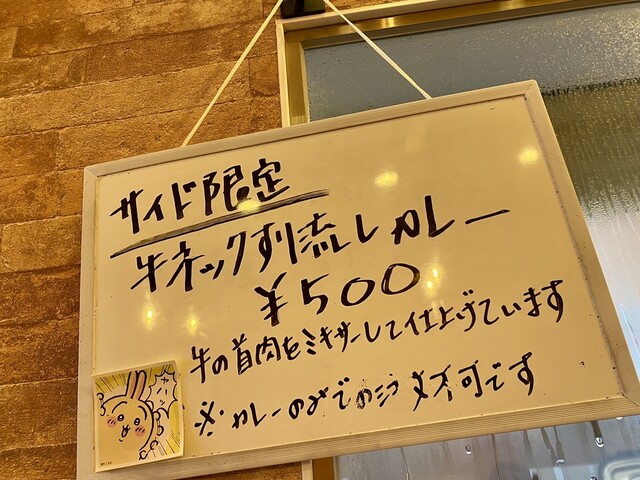 サイド限定
牛ネックすり流しカレー
¥500
牛の首肉をミキサーして仕上げています
※カレーのみでのご注文不可です